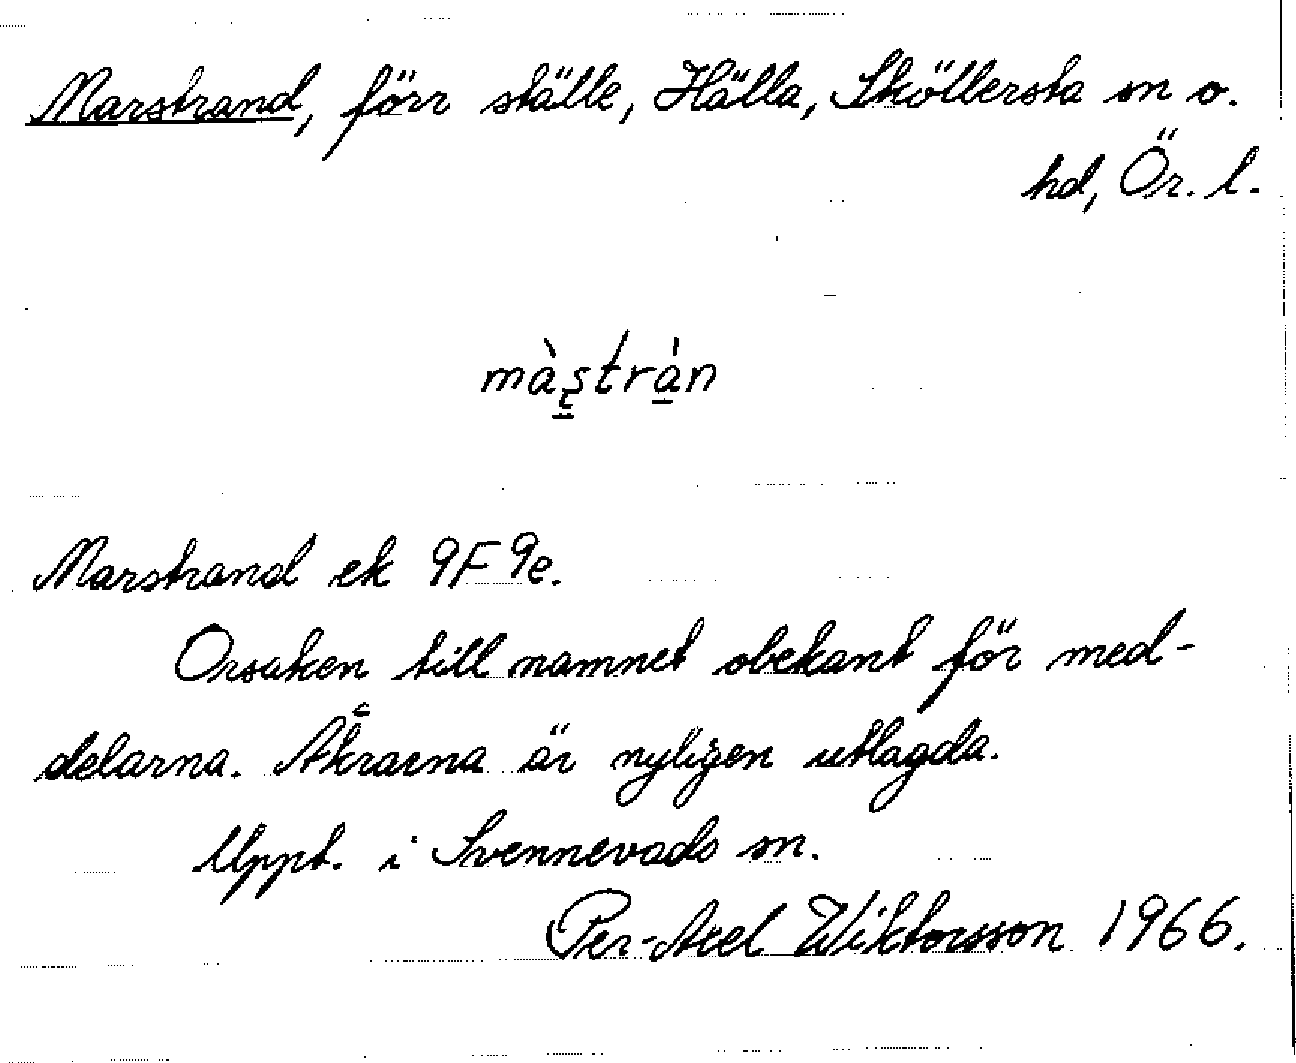 Marstrand, förr ställe, Hälla, Sköllersta sn o.
hd, Ör. l.
màstràn
Marstrand ek 9F 9e.
Orsaken till namnet obekant för med-
delarna. Åkrarna är nyligen utlagda.
Uppt. i Svennevads sn.
Per-Axel Wiktorsson 1966.